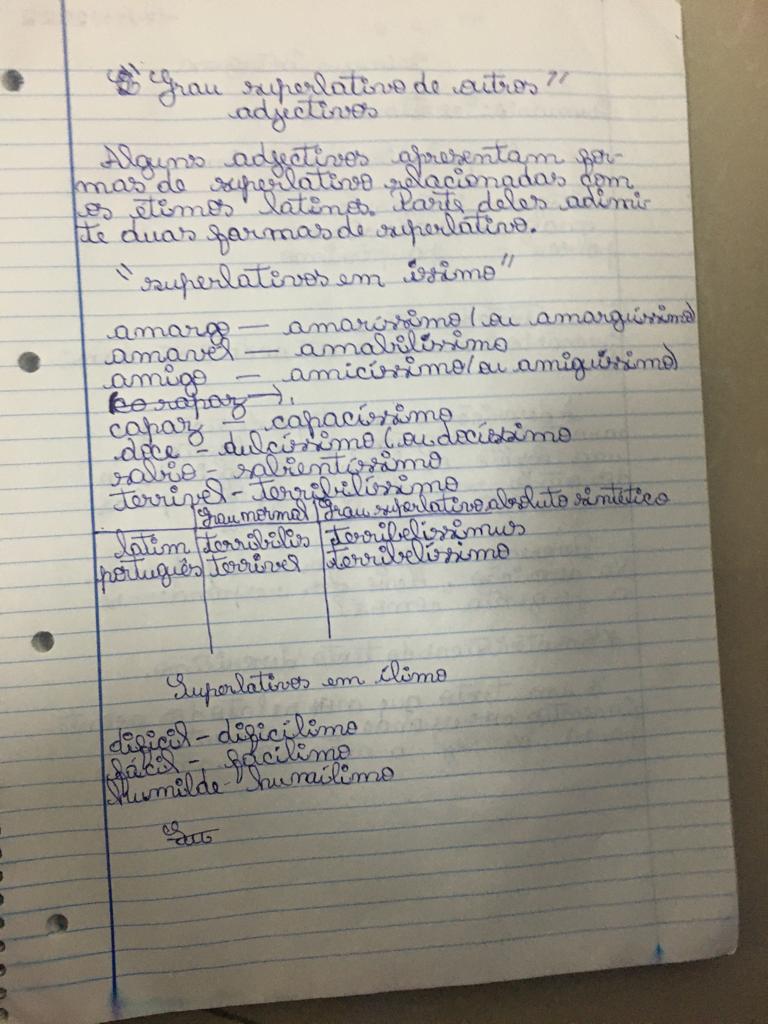 "Grau superlativo de outros"
adjectivos
Alguns adjectivos apresentam for-
mas de superlativo relacionadas com
os étimos latinos. Parte deles adimi-
te duas formas de superlativo.
"superlativos em íssimo"
amargo — amaríssimo (ou amarguíssimo)
amavel — amabilíssimo
amigo — amicíssimo (ou amiguíssimo)
capaz — capacíssimo
doce - dulcíssimo (ou docíssimo
sabio - sabientíssimo
terrivel - terribilíssimo
Grau normal Grau superlativo absoluto sintético
latim terribilis terribelissimus
português terrivel terribelíssimo
Superlativos em ílimo
dificil - dificílimo
fácil - facílimo
humilde - humílimo